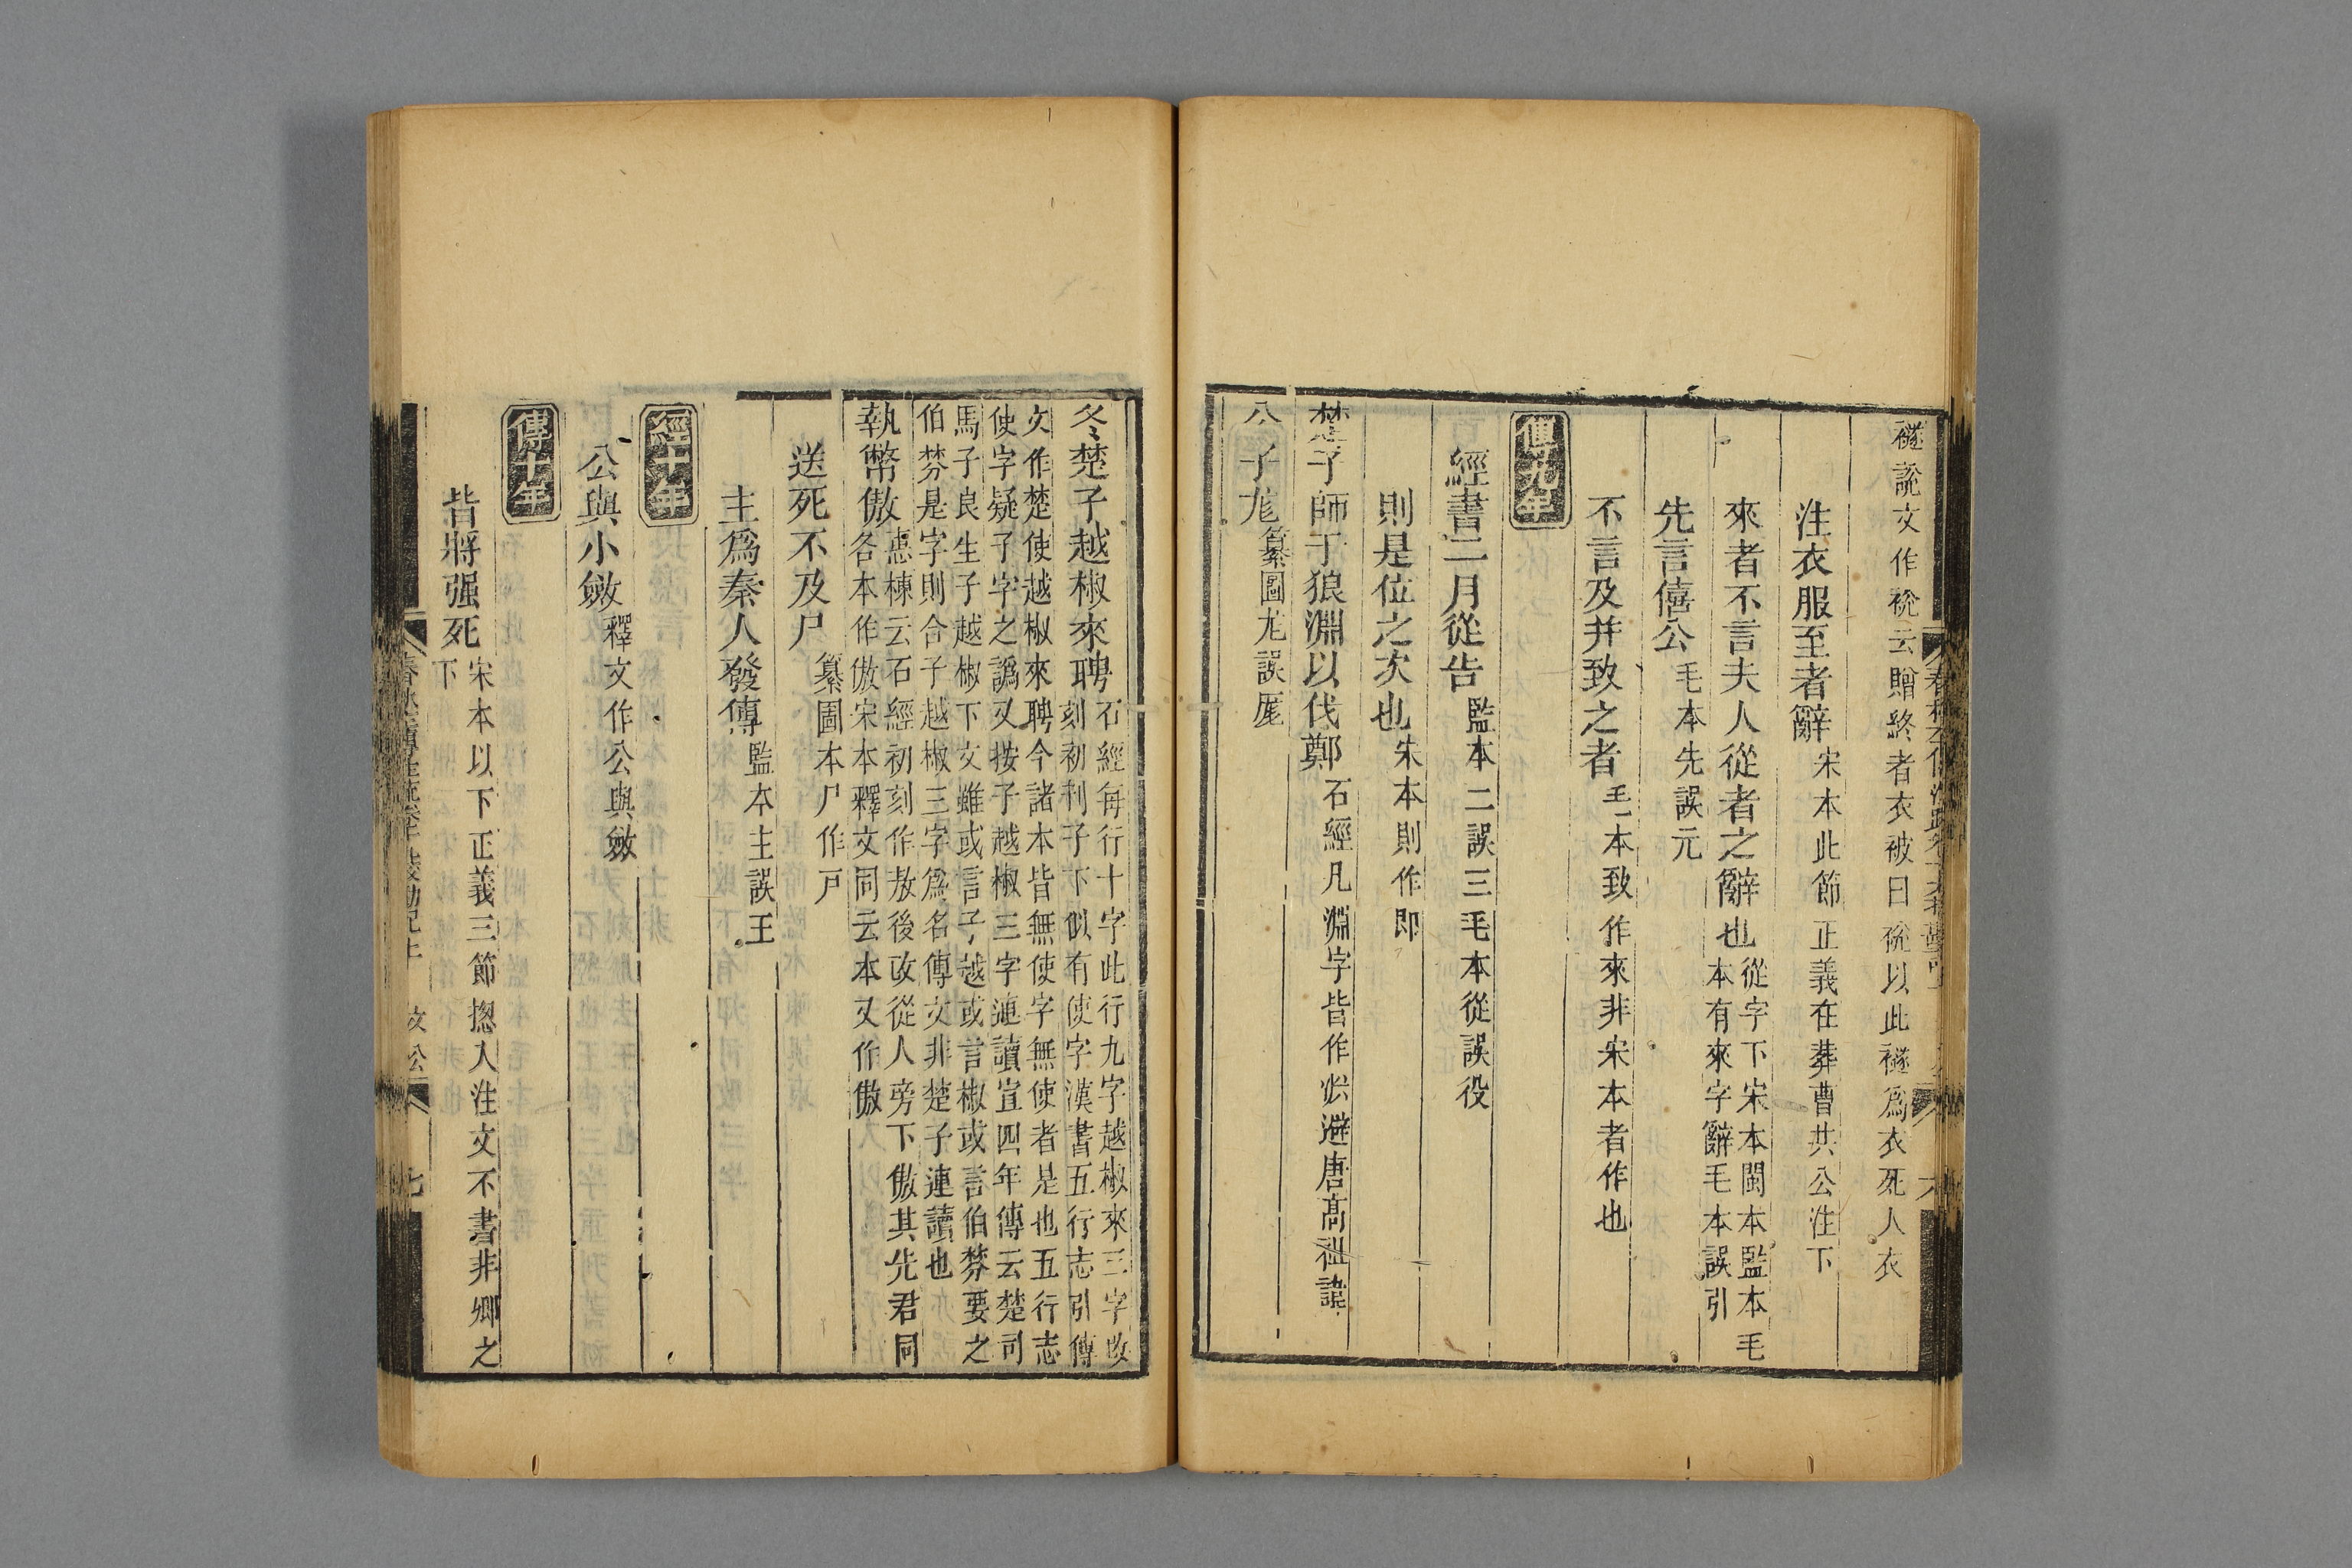 襚說文作裞云贈終者衣被曰裞以此襚爲衣死人衣
注衣服至者辭宋本此節正義在葬曹共公注下
來者不言夫人從者之辭也從字下宋本閩本監本毛
本有來字辭毛本誤引
先言僖公毛本先誤元
不言及并致之者毛本致作來非宋本者作也
傳九年
經書二月從告監本二誤三毛本從誤役
則是位之次也宋本則作即
楚子師于狼淵以伐鄭石經凡淵字皆作㳶避唐高祖諱
公子尨纂圖尨誤厖
冬楚子越椒來聘石經每行十字此行九字越椒來三字改
刻初刊子下似有使字漢書五行志引傳
文作楚使越椒來聘今諸本皆無使字無使者是也五行志
使字疑子字之譌又按子越椒三字連讀宣四年傳云楚司
馬子良生子越椒下文雖或言子越或言椒或言伯棼要之
伯棼是字則合子越椒三字爲名傳文非楚子連讀也
執幣傲惠棟云石經初刻作敖後改從人旁下傲其先君同
各本作傲宋本釋文同云本又作傲
送死不及尸纂圖本尸作尸
主爲秦人發傳監本主誤王
經十年
公與小斂釋文作公與斂
傳十年
皆將强死宋本以下正義三節揔入注文不書非卿之
下